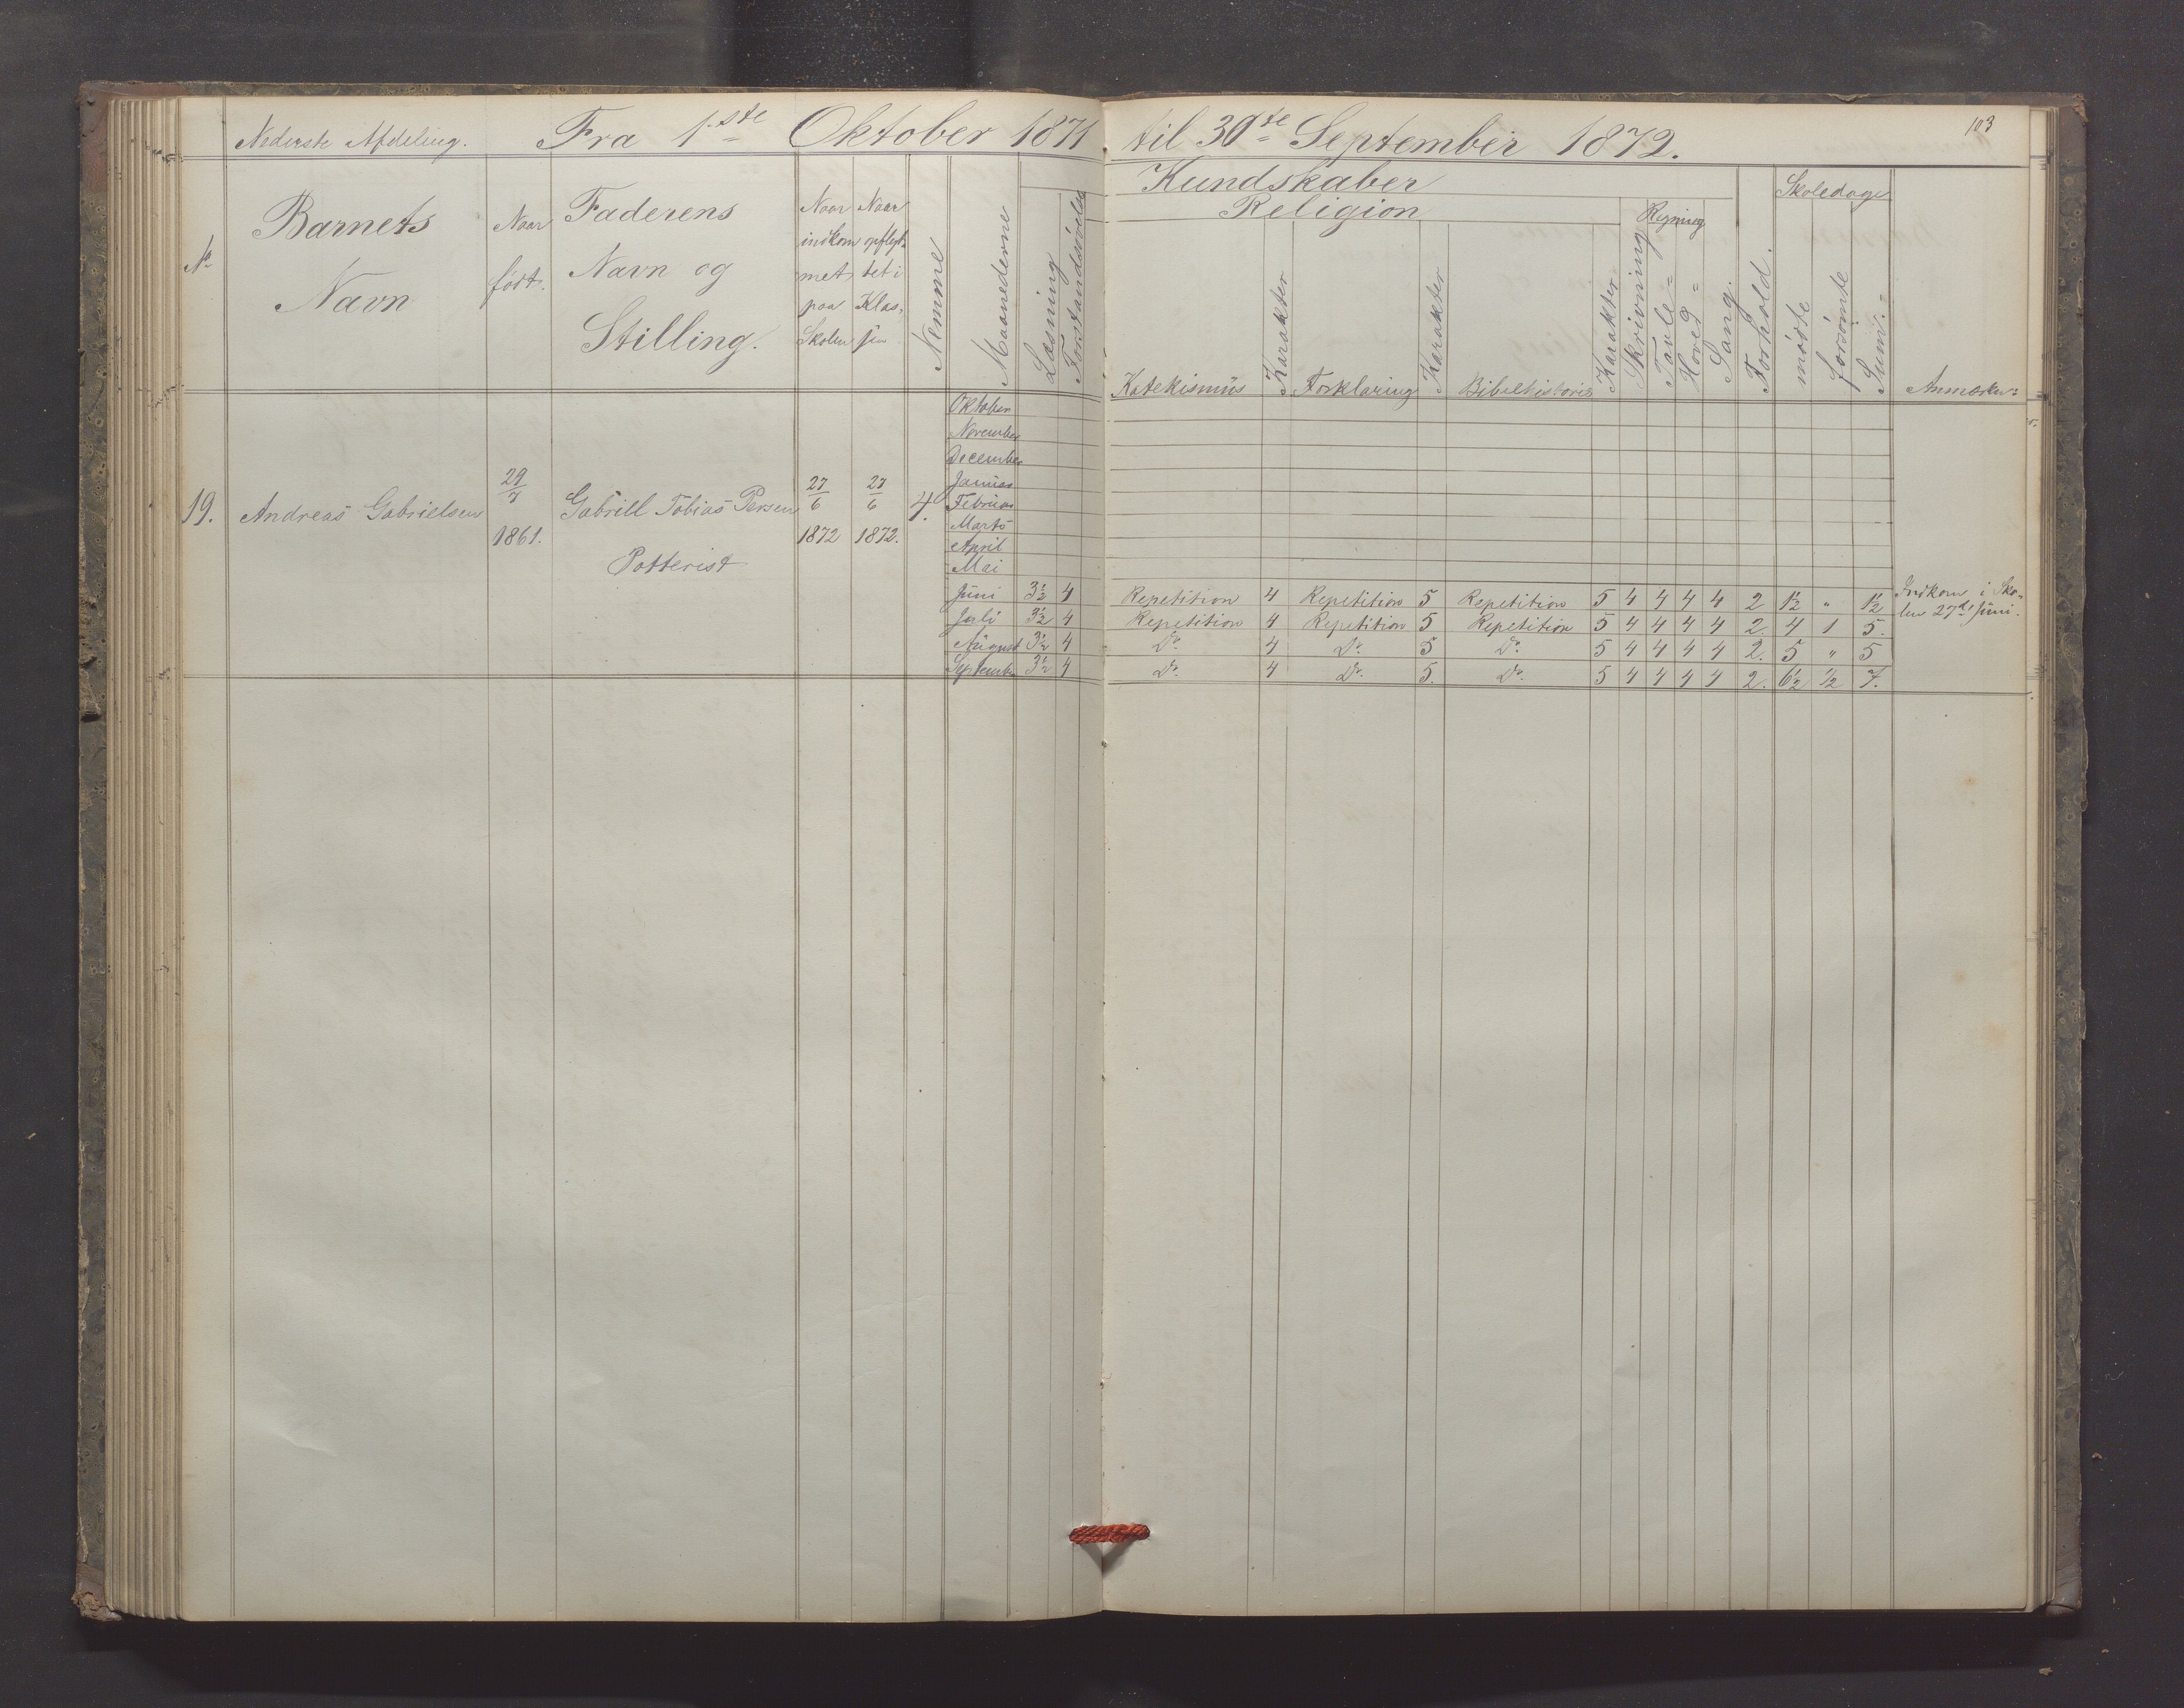 Nederste Afdeling. Fra 1ste Oktober 1871 til 30te September 1872. 103
No
Barnets
Navn
Naar
født.
Faderens
Navn og
Stilling.
Naar
indkom
met
paa
Skolen
Naar
opflyt
tet i
Klas-
sen
Nemme
Maanederne
Læsning
Forstandsøvelse
Kundskaber
Religion
Katekismus
Karakter
Forklaring
Karakter
Bibelhistorie
Karakter
Skrivning
Regning
Tavle =
Hoved =
Sang.
Forhold.
Skoledage
mödte
forsömte
Sum.=
Anmærkn:
Oktober
November
December
Januar
19. Andreas Gabrielsen 29/7 1861. Gabriell Tobias Persen 27/6 1872 27/6 1872. 4. Februar
Potterist
Marts
April
Mai
Juni 3½ 4 Repetition 4 Repetition 5 Repetition 5 4 4 4 4 2 1½ " 1½ Indkom i Sko-
Juli 3½ 4 Repetition 4 Repetition 5 Repetition 5 4 4 4 4 2. 4 1 5. len 27de Juni.
August 3½ 4 Do. 4 Do. 5 Do. 5 4 4 4 4 2. 5 " 5
September 3½ 4 Do. 4 Do. 5. Do. 5 4 4 4 4 2. 6½ ½ 7.